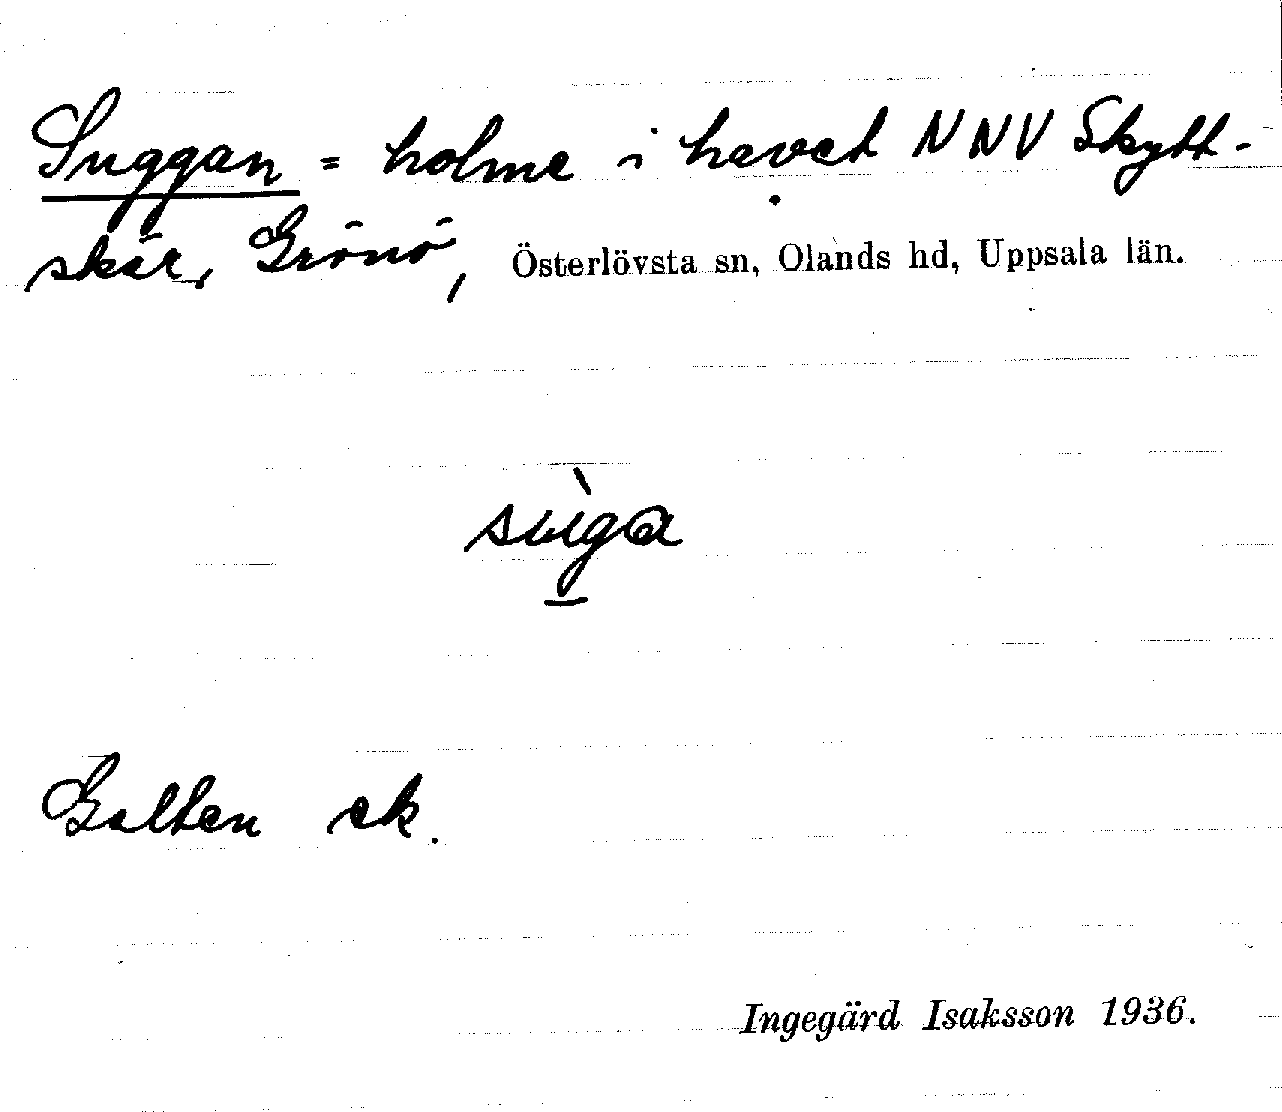 Suggan = holme i havet NNV Skytt-
skär, Grönö, Österlövsta sn, Olands hd, Uppsala län.
sùga
Galten sk.
Ingegärd Isaksson 1936.